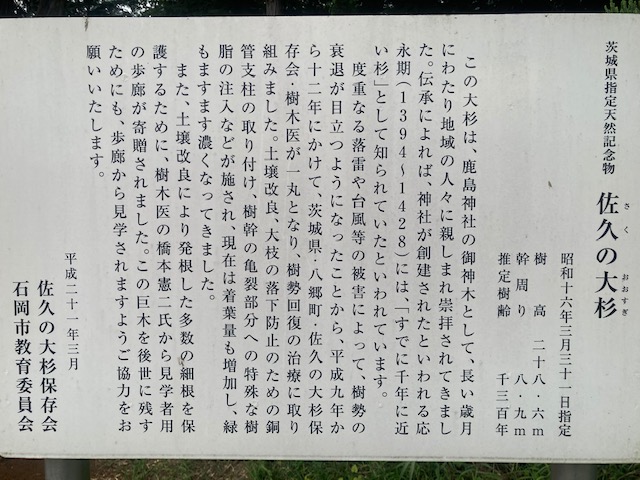 茨城県指定天然記念物
佐久の大杉
さく
おおすぎ
昭和十六年三月三十一日指定
樹高 二十八・六m
幹周り 八・九m
推定樹齢 千三百年
この大杉は、鹿島神社の御神木として、長い歳月
にわたり地域の人々に親しまれ崇拝されてきまし
た。伝承によれば、神社が創建されたといわれる応
永期(1394~1428)には、「すでに千年に近
い杉」として知られていたといわれています。
度重なる落雷や台風等の被害によって、樹勢の
衰退が目立つようになったことから、平成九年か
ら十二年にかけて、茨城県・八郷町・佐久の大杉保
存会・樹木医が一丸となり、樹勢回復の治療に取り
組みました。土壌改良、大枝の落下防止のための鋼
管支柱の取り付け、樹幹の亀裂部分への特殊な樹
脂の注入などが施され、現在は着葉量も増加し、緑
もますます濃くなってきました。
また、土壌改良により発根した多数の細根を保
護するために、樹木医の橋本憲二氏から見学者用
の歩廊が寄贈されました。この巨木を後世に残す
ためにも、歩廊から見学されますようご協力をお
願いいたします。
平成二十一年三月
佐久の大杉保存会
石岡市教育委員会